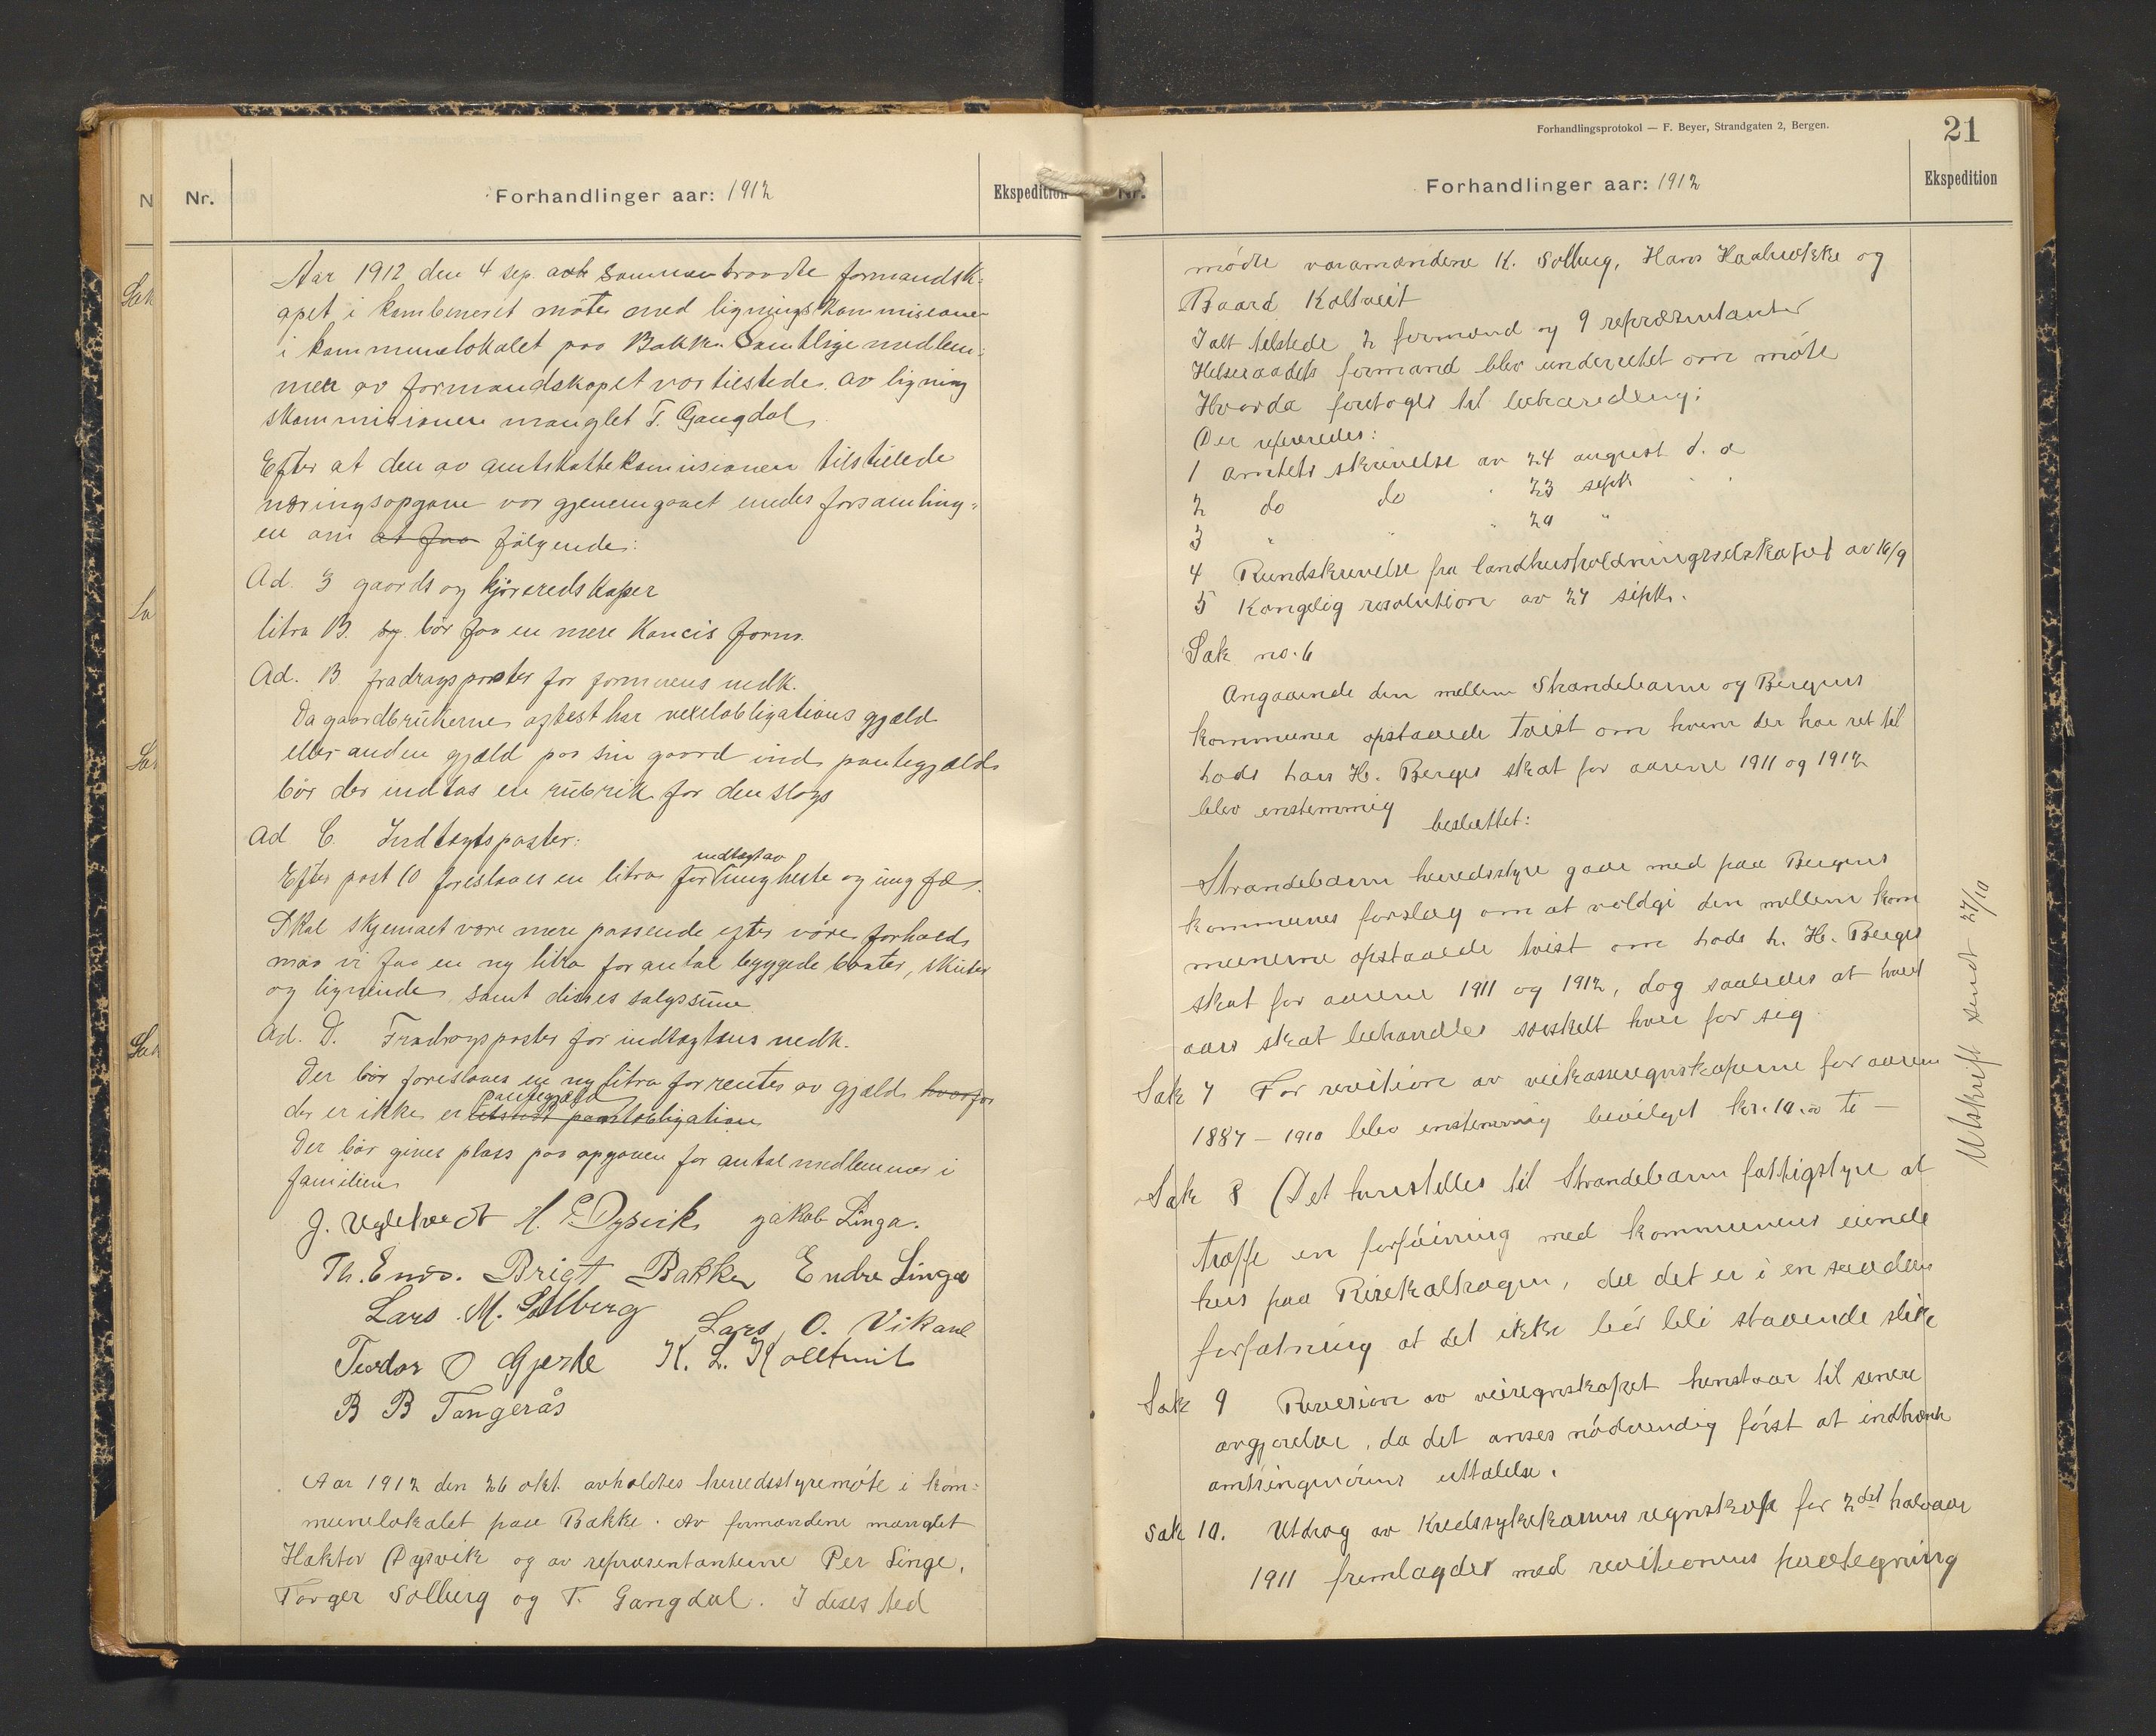 Nr.
Forhandlinger aar: 1912
Ekspedition
Aar 1912 den 4 sep. sammentraadte formandsk-
apet i kombeneret möte med ligningskommisione
i kommunelokalet paa Bakke. Samtlige medlem-
mer av formandskapet var tilstede. av ligning
skommisionen manglet T. Gangdal
Efter at den av amtskattekomisionen tilstillede
næringsopgave var gjenemgaaet enedes forsamling-
en om at faa fölgende:
Ad. 3 gaards og kjöreredskaper
litra B. bör faa en mere koncis form.
Ad. B fradragsposter for formuens vedk.
Da gaardbrukerne oftest har vexelobligations gjæld
eller anden gjæld paa sin gaard end pantegjæld
bör der indtas en rubrik for den slags
Ad C. Indtægtsposter:
Efter post 10 foreslaaes en litra for indtægt av ungheste og ungfæ.
Skal skjemaet være mere passende efter vöre forhold
maa vi faa en ny litra for antal byggede baater, skuter
og lignende samt disses salgssum
Ad. D. Fradragsposter for indtægtens vedk.
Der bör foreslaaes en ny litra for renter av gjæld hvorfor
der er ikke er pantegjæld utstedt pantobligation
Der bör gives plass paa opgaven for antal medlemmer i
familien
J. Uglehvedt H. Dysvik Jakob Linga.
Th. Enes. Brigt Bakke Endre Linga
Lars M. Solberg Lars O. Vikane
Teodor O Gjerde K. L. Kolltveit
B B Tangerås
Aar 1912 den 26 okt. avholdtes herredsstyremöte i kom-
munelokalet paa Bakke. Av formændene manglet
Haktor Dysvik og av repræsentanterne Per Linge,
Torger Solberg og T. Gangdal. I deses sted
Forhandlingsprotokol — F. Beyer, Strandgaten 2, Bergen.
21
Nr.
Forhandlinger aar: 1912
Ekspedition
mödte varamændene K. Solberg, Hans Haalnække og
Baard Koltveit
I alt tilstede 2 formænd og 9 repræsentanter
Helseraadets formand blev underrettet om möte
Hvorda foretoges til behandling:
Der refereredes:
1 amtets skrivelse av 24 august d. a
2 do do " 23 sept " "
3 " " " 20 "
4 Rundskrivelse fra landhusholdningsselskapet av 16/9
5 Kongelig resolution av 27 septb.
Sak no. 6
Angaaende den mellem Strandebarm og Bergens
kommuner opstaaede tvist om hvem der har ret til
hads hans H. Berges skat for aarene 1911 og 1912
blev enstemmig
besluttet:
Strandebarm herredsstyre gaar med paa Bergens
kommunes forslag om at voldgi den mellem kom
munerne opstaaede tvist om hads h. H. Berges
skat for aarene 1911 og 1912, dog saaledes at hvert
aars skat behandles særskilt hver for sig
Sak 7 For revition av veikasseregnskaperne for aarene
1887 – 1910 blev enstemmig bevilget kr. 10.00 ti —
Sak 8 Det henstilles til Strandebarm fattigstyre at
træffe en forföining med kommunens eiende
hus paa , da det er i en saadan
forfatning at det ikke bör bli staaende slik
Sak 9 Revesion av veiregnskapet henstaar til senere
avgjörelse, da det anses nödvendig först at indhænte
amtsingeniörens uttalelse.
Sak 10. Utdrag av Kredssykekassens regnskap for 2det halvaar
1911 fremlagdes med revitionens paategning
Utskrift sendt 27/10
Sak
Sa
Sak
Sak